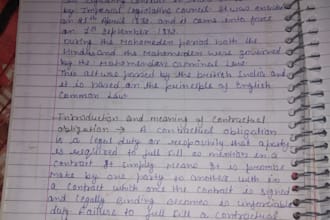 by Imperial legislative council. It was enacted
on 25th April 1872 and it came into force
on 1st September 1872.
During the Mohameden period both the
Hindus and the Mohameden were governed
by the Mohameden criminal law.
This act was passed by the British India and
it is based on the principle of English
Common Law
Introduction and meaning of contractual
obligation → A contractual obligation
is a legal duty or responsibility that a party
is required to full fill as mention in a
contract It simply means It is promise
make by one party to another with in
a contract which one the contract is signed
and legally binding becomes is unforceable
duty. Failure to full fill a contractual